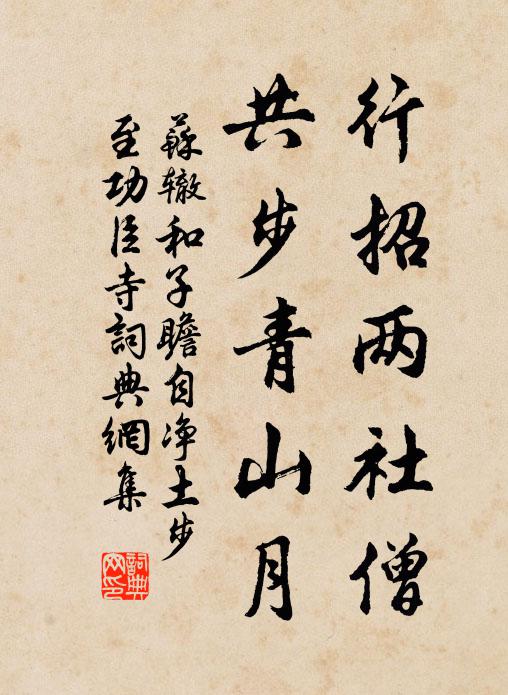 行招两社僧
共步青山月
蘇辙和子瞻自净土步
至功臣寺詞典網集
詞典
网印